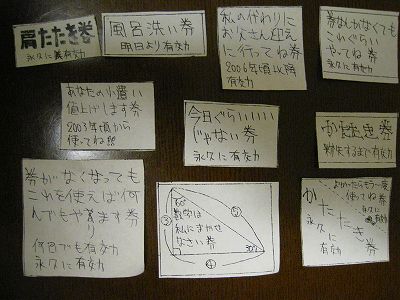 肩たたき券
永久に有効
風呂洗い券
明日より有効
私の代わりに
お父さん迎え
に行ってね券
2006年頃以降
有効
券なんかなくても
これぐらい
やってね券
永久に有効
あなたの小遣い
値上げします券
2003年頃から
使ってね
今日ぐらいいい
じゃない券
永久に有効
かたたたき券
紛失するまで有効
券がなくなっても
これを使えば何
んでもやります券
何回でも有効
永久に有効
60°
数学は
私にまかせ
なさい券
30°
③
⑤
④
よかったらもう一度
使ってね券
永久に
有効
かたたたき券
永久に
有効